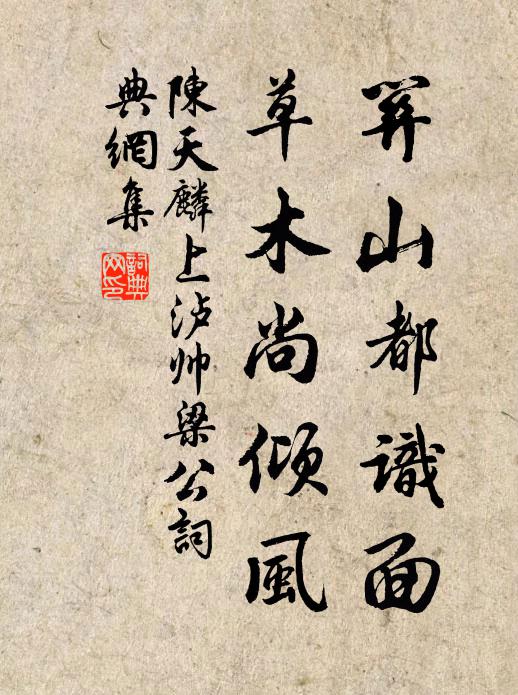 關山都識面
草木尚傾風
陳天麟上泸帅梁公詞
典網集
詞典
网印